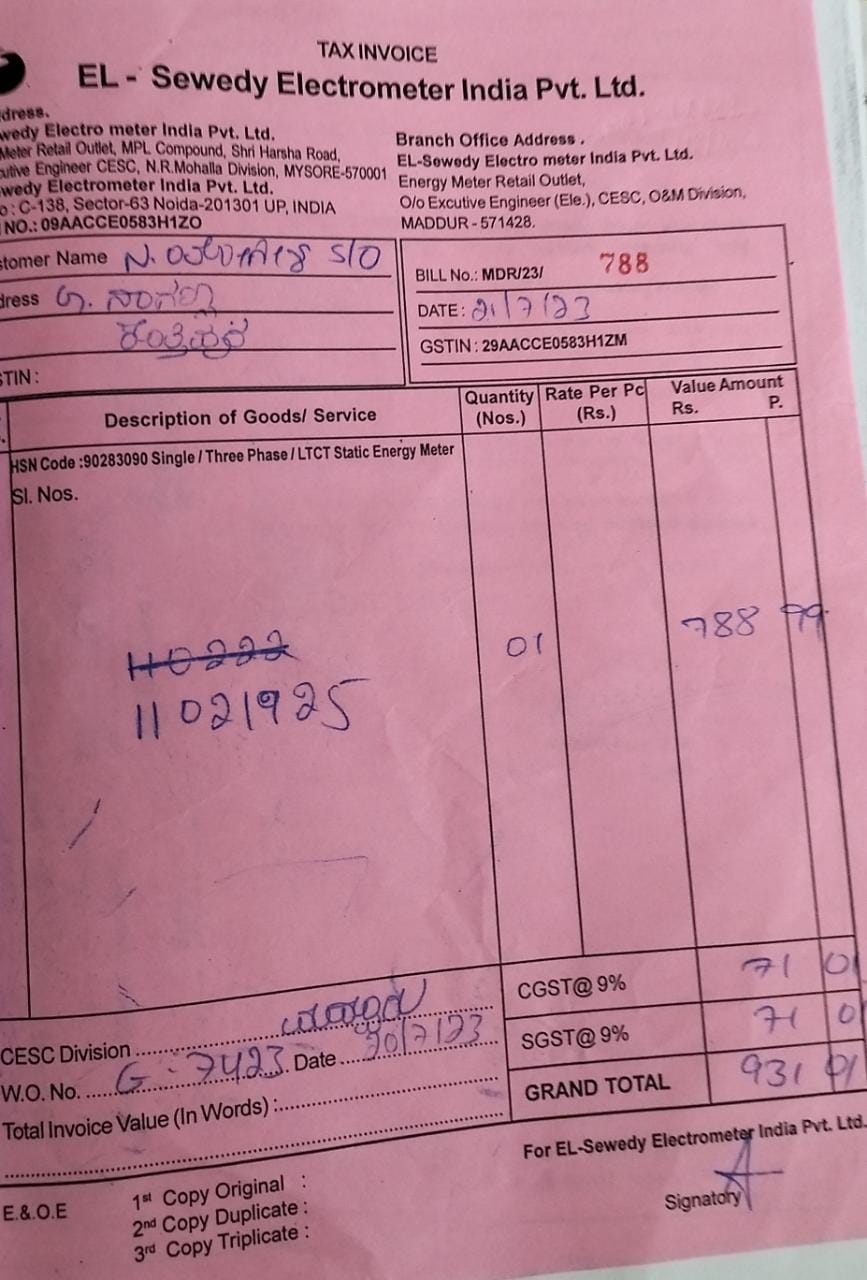 TAX INVOICE
EL - Sewedy Electrometer India Pvt. Ltd.
dress.
wedy Electro meter India Pvt. Ltd.
Meter Retail Outlet, MPL Compound, Shri Harsha Road,
utive Engineer CESC, N.R.Mohalla Division, MYSORE-570001
wedy Electrometer India Pvt. Ltd.
o : C-138, Sector-63 Noida-201301 UP, INDIA
NO.: 09AACCE0583H1ZO
Branch Office Address .
EL-Sewedy Electro meter India Pvt. Ltd.
Energy Meter Retail Outlet,
O/o Excutive Engineer (Ele.), CESC, O&M Division,
MADDUR - 571428.
stomer Name N. S/O
dress
STIN :
BILL No.: MDR/23/ 788
DATE : 21/7/23
GSTIN : 29AACCE0583H1ZM
Description of Goods/ Service Quantity (Nos.) Rate Per Pc (Rs.) Value Amount Rs. P.
HSN Code :90283090 Single / Three Phase / LTCT Static Energy Meter
Sl. Nos.
110222
11021925 01 788 99
CGST@ 9% 71 01
SGST@ 9% 71 01
GRAND TOTAL 931 01
CESC Division
W.O. No. G - 7423. Date 20/7/23
Total Invoice Value (In Words) :
For EL-Sewedy Electrometer India Pvt. Ltd.
Signatory
E.&.O.E
1st Copy Original :
2nd Copy Duplicate :
3rd Copy Triplicate :